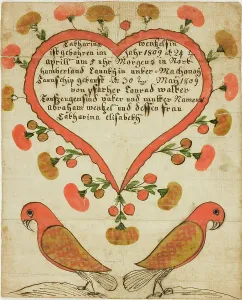 Catharina wentzelsin
ist gebohren im jahr 1809 d 24
aprill am 5 uhr Morgens in Nort
humberland Caunty in unter Machonoy
Taunschip getauft d 30 Maÿ 1809
von pfarher Conrad walter
Taufzeugen sind vater und mutter Namens
abraham wentzel und dessen frau
Catharina elisabeth